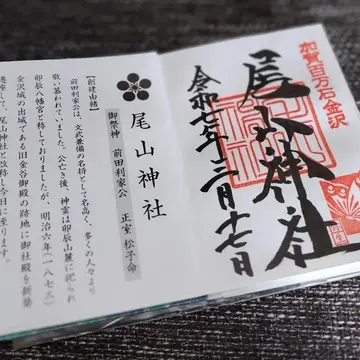 加賀百万石金沢
尾山神社
令和七年三月十七日
尾山神社
御祭神 前田利家公 正室 松子命
【創建由緒】
前田利家公は、文武兼備の名将として名高く、多くの人々より
敬い慕われていました。公亡き後、神霊は卯辰山麓に祀られ
卯辰八幡宮と称しておりましたが、明治六年(一八七三)
金沢城の出城である旧金谷御殿の跡地に御社殿を新築
遷座して、尾山神社と改称し今日に至ります。